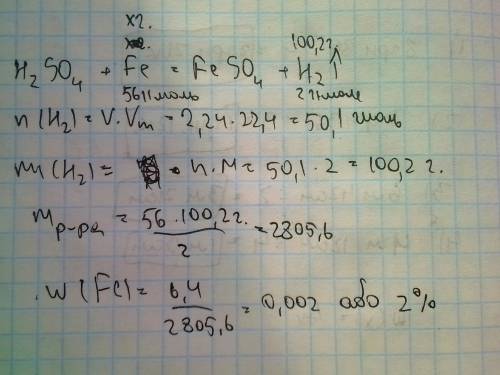 x2.
100,2г
H₂SO₄ + Fe = FeSO₄ + H₂↑
56 г/моль 2 г/моле
n(H₂) = V·Vm = 2,24·22,4 = 50,1 моль
m(H₂) = n·M = 50,1·2 = 100,2 г.
mр-ра = 56·100,2г. / 2 = 2805,6
w(Fe) = 6,4 / 2805,6 = 0,002 або 2%